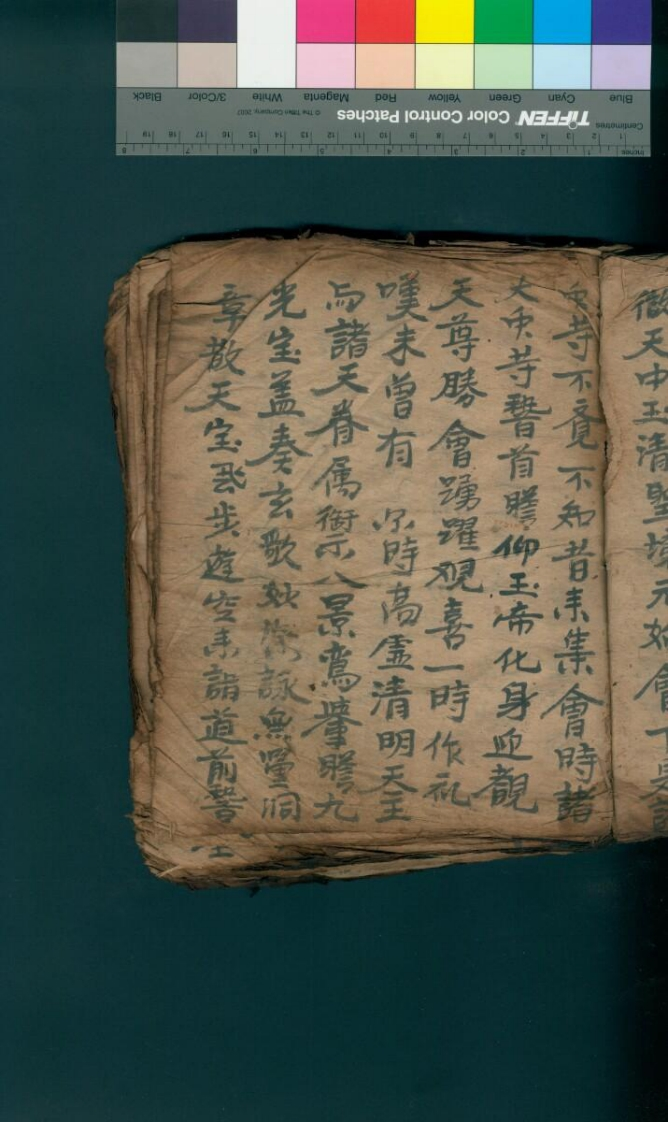 微天中玉清聖境元始會下是諸
眾等不覺不知昔來集會時諸
大眾等稽首瞻仰玉帝化身迎覩
天尊勝會踴躍观喜一時作礼
嘆未曾有 尔時高虛清明天王
与諸天眷属衛示八景鸞輦瞻九
光宝盖奏玄歌妙 詠無量洞
章散天宝飛步遊空来詣道前稽
Centimetres
Inches
TIFFEN Color Control Patches
© The Tiffen Company, 2007
Blue Cyan Green Yellow Red Magenta White 3/Color Black
1 2 3 4 5 6 7 8 9 10 11 12 13 14 15 16 17 18 19
1 2 3 4 5 6 7 8